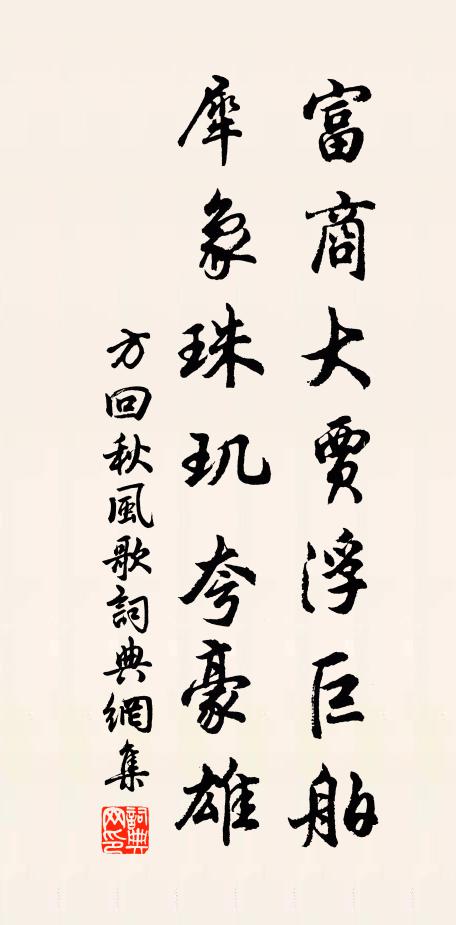 富商大賈浮巨舶
犀象珠玑夸豪雄
方回秋風歌詞典網集
詞典网印